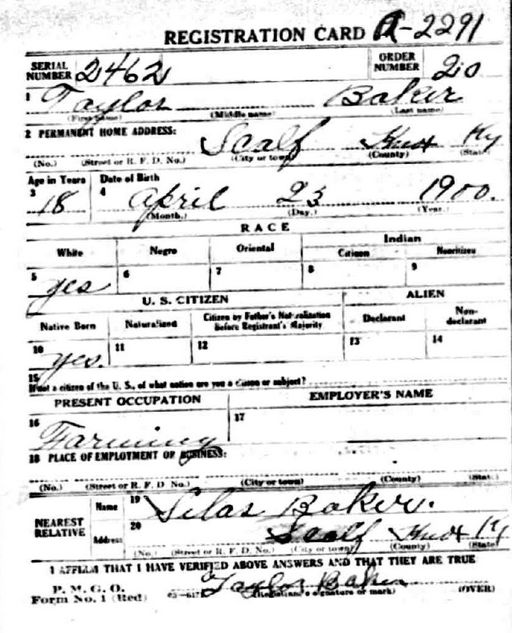 REGISTRATION CARD A-2291
SERIAL NUMBER 2462 ORDER NUMBER 20
1 Taylor Baker
(First name) (Middle name) (Last name)
2 PERMANENT HOME ADDRESS: Scalf Knox Ky
(No.) (Street or R. F. D. No.) (City or town) (County) (State)
Age in Years Date of Birth
3 18 4 April 23 1900.
(Month.) (Day.) (Year.)
RACE
White Negro Oriental Indian
Citizen Noncitizen
5 yes 6 7 8 9
U. S. CITIZEN ALIEN
Native Born Naturalized Citizen by Father's Naturalization Before Registrant's Majority Declarant Non-declarant
10 yes. 11 12 13 14
15 If not a citizen of the U. S., of what nation are you a citizen or subject?
PRESENT OCCUPATION EMPLOYER'S NAME
16 Farming 17
18 PLACE OF EMPLOYMENT OR BUSINESS:
(No.) (Street or R. F. D. No.) (City or town) (County) (State)
NEAREST RELATIVE Name 19 Silas Baker.
Address 20 Scalf Knox Ky
(No.) (Street or R. F. D. No.) (City or town) (County) (State)
I AFFIRM THAT I HAVE VERIFIED ABOVE ANSWERS AND THAT THEY ARE TRUE
P. M. G. O.
Form No. 1 (Red) Taylor Baker
(Registrant's signature or mark) (OVER)